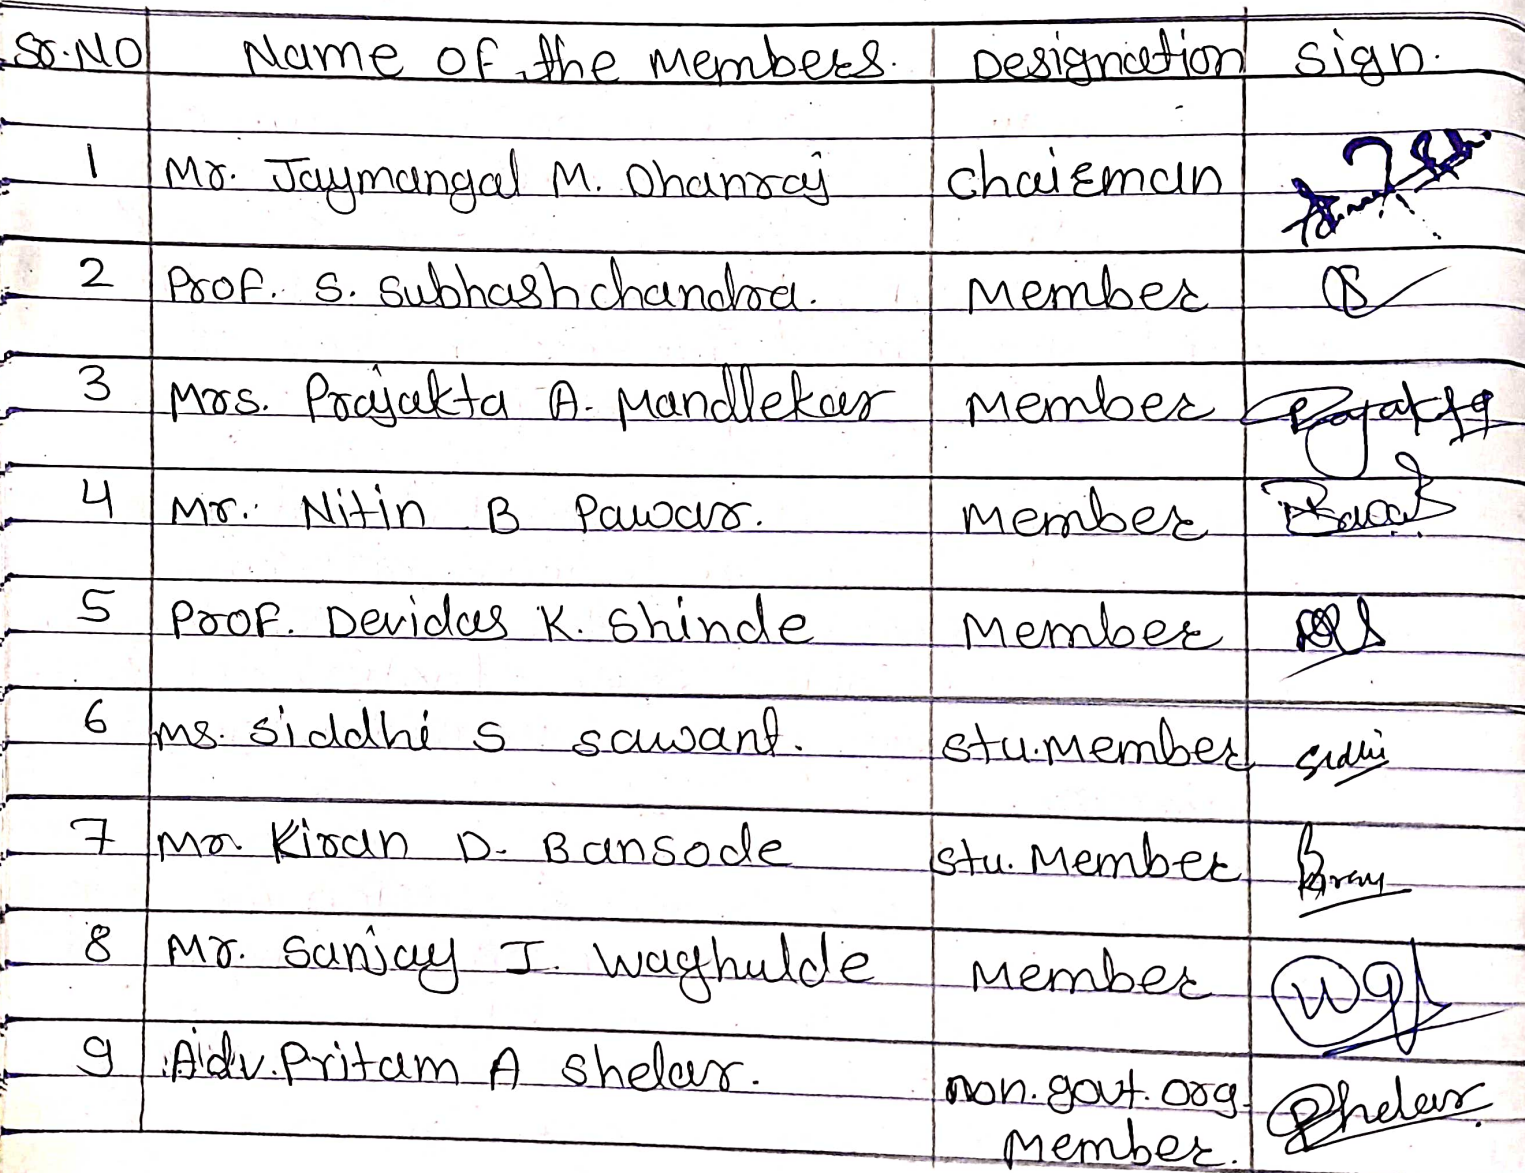 Sr.No Name of the Members. Designation Sign.
1 Mr. Jaymangal M. Dhanraj Chairman
2 Prof. S. Subhashchandra. Member
3 Mrs. Prajakta A. Mandlekar Member Prajakta
4 Mr. Nitin B Pawar. Member
5 Prof. Devidas K. Shinde Member
6 Ms. Siddhi S Sawant. Stu.Member
7 Mr. Kiran D. Bansode Stu. Member
8 Mr. Sanjay I. Waghulde Member
9 Adv. Pritam A Shelar. non.govt.org. Pshelar
Member.